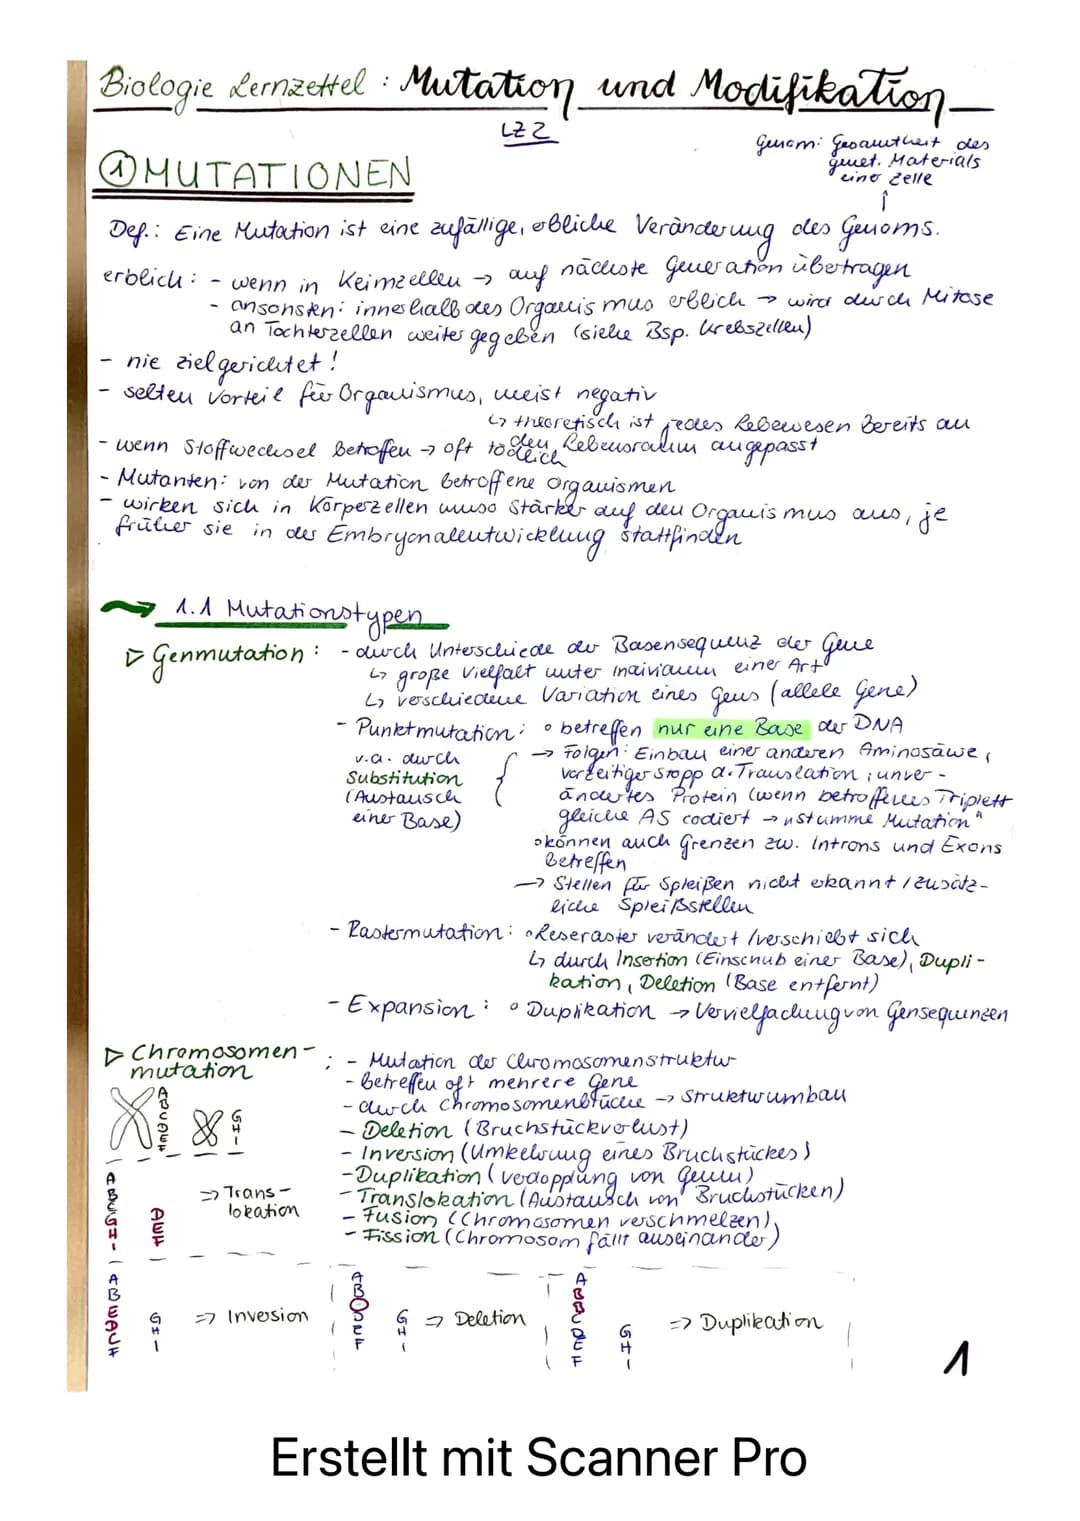 Biologie Lernzettel : Mutation und Modifikation
LZ 2
Genom: Gesamtheit des
genet. Materials
einer Zelle
① MUTATIONEN
Def.: Eine Mutation ist eine zufällige, erbliche Veränderung des Genoms.
erblich: - wenn in Keimzellen → auf nächste Generation übertragen
- ansonsten: innerhalb des Organismus erblich → wird durch Mitose
an Tochterzellen weitergegeben (siehe Bsp. Krebszellen)
- nie zielgerichtet!
- selten Vorteil für Organismus, meist negativ
↳ theoretisch ist jedes Lebewesen bereits an
den Lebensraum angepasst
- wenn Stoffwechsel betroffen → oft tödlich
- Mutanten: von der Mutation betroffene Organismen
- wirken sich in Körperzellen umso stärker auf den Organismus aus, je
früher sie in der Embryonalentwicklung stattfinden
1.1 Mutationstypen
▷ Genmutation: - durch Unterschiede der Basensequenz der Gene
↳ große Vielfalt unter Individuen einer Art
↳ verschiedene Variation eines Gens (allele Gene)
- Punktmutation: ∘ betreffen nur eine Base der DNA
v.a. durch
Substitution
(Austausch
einer Base)
→ Folgen: Einbau einer anderen Aminosäure,
vorzeitiger Stopp d. Translation; unver-
ändertes Protein (wenn betroffenes Triplett
gleiche AS codiert → "stumme Mutation"
∘ können auch Grenzen zw. Introns und Exons
betreffen
→ Stellen für Spleißen nicht erkannt / zusätz-
liche Spleißstellen
- Rastermutation: ∘ Leseraster verändert / verschiebt sich
↳ durch Insertion (Einschub einer Base), Dupli-
kation, Deletion (Base entfernt)
- Expansion: ∘ Duplikation → Vervielfachung von Gensequenzen
▷ Chromosomen-
mutation
: - Mutation der Chromosomenstruktur
- betreffen oft mehrere Gene
- durch Chromosomenbrüche → Strukturumbau
- Deletion (Bruchstückverlust)
- Inversion (Umkehrung eines Bruchstückes)
- Duplikation (Verdopplung von Genen)
- Translokation (Austausch von Bruchstücken)
- Fusion (Chromosomen verschmelzen)
- Fission (Chromosom fällt auseinander)
ABCDEF
GHI
ABCGHI
DEF
⇒ Trans-
lokation
ABEDCF
GHI
⇒ Inversion
ABCDEF
GHI
⇒ Deletion
ABBCDEF
GHI
⇒ Duplikation
1
Erstellt mit Scanner Pro